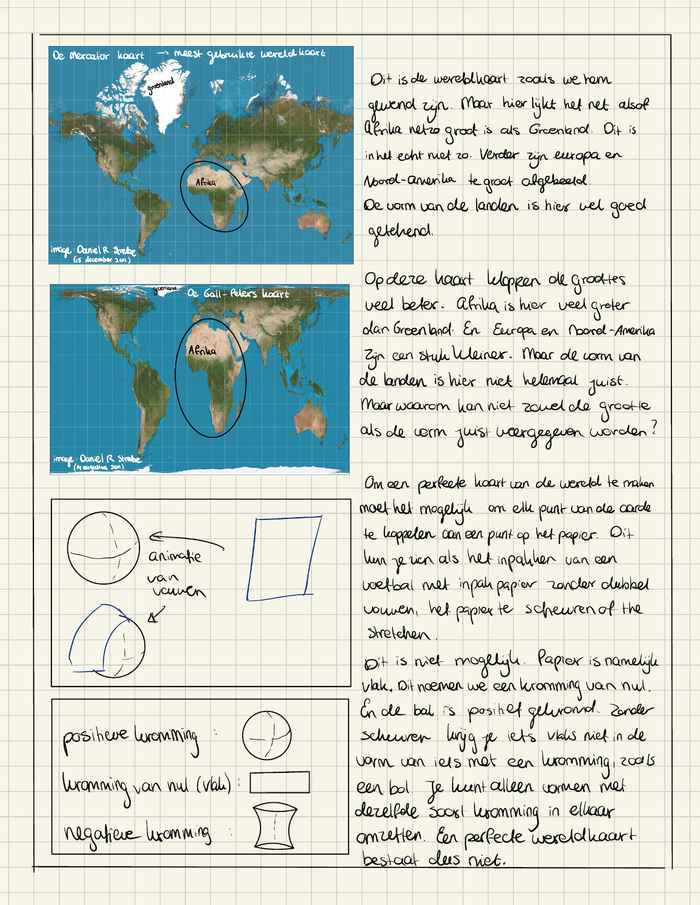 De Mercator kaart → meest gebruikte wereldkaart
groenland
Afrika
image: Daniel R. Strebe
(15 december 2011)
Dit is de wereldkaart zoals we hem
gewend zijn. Maar hier lijkt het net alsof
Afrika net zo groot is als Groenland. Dit is
in het echt niet zo. Verder zijn europa en
Noord-Amerika te groot afgebeeld.
De vorm van de landen is hier wel goed
getekend.
De Gall-Peters kaart
Afrika
image: Daniel R. Strebe
Op deze kaart kloppen de groottes
veel beter. Afrika is hier veel groter
dan Groenland. En Europa en Noord-Amerika
zijn een stuk kleiner. Maar de vorm van
de landen is hier niet helemaal juist.
Maar waarom kan niet zowel de grootte
als de vorm juist weergegeven worden?
animatie
van
vouwen
Om een perfecte kaart van de wereld te maken
moet het mogelijk om elk punt van de aarde
te koppelen aan een punt op het papier. Dit
kun je zien als het inpakken van een
voetbal met inpakpapier zonder dubbel
vouwen, het papier te scheuren of the
stretchen.
Dit is niet mogelijk. Papier is namelijk
vlak. Dit noemen we een kromming van nul.
En de bal is positief gekromd. Zonder
scheuren krijg je iets vlaks niet in de
vorm van iets met een kromming, zoals
een bol. Je kunt alleen vormen met
dezelfde soort kromming in elkaar
omzetten. Een perfecte wereldkaart
bestaat dus niet.
positieve kromming :
kromming van nul (vlak) :
negatieve kromming :